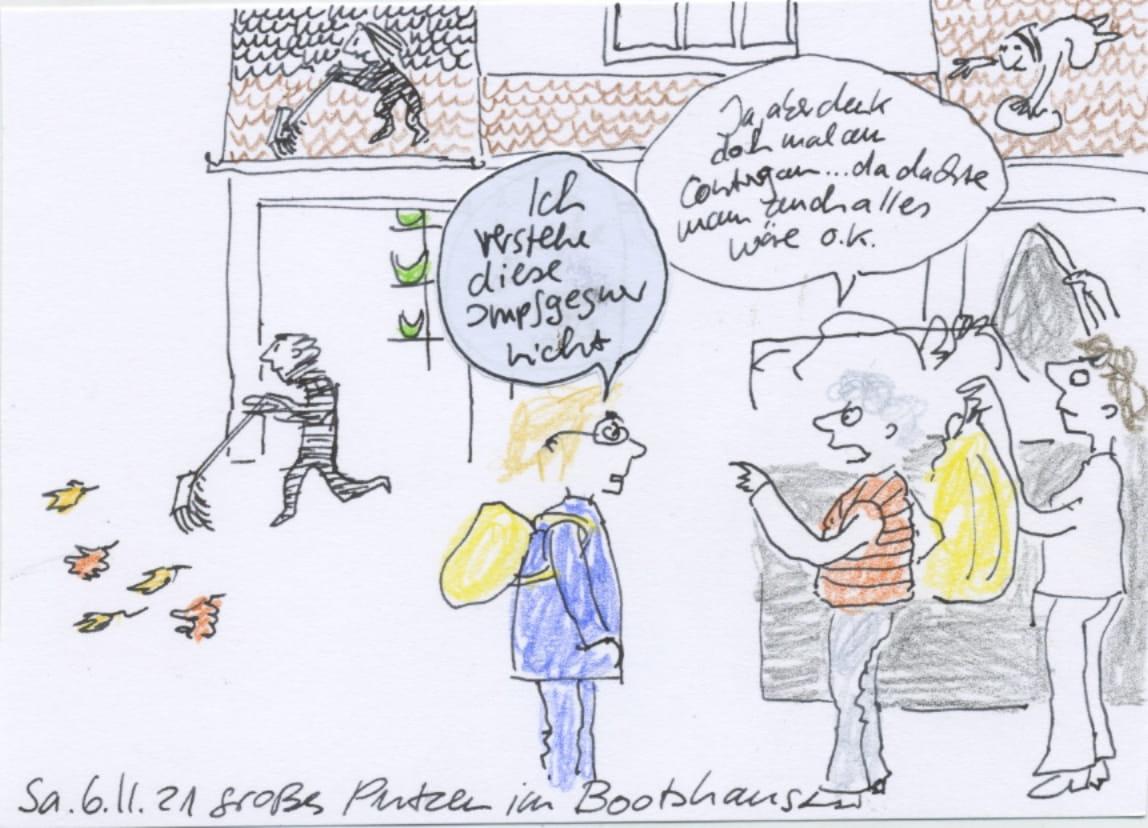 Ich
verstehe
diese
Impfgegner
nicht
Ja, aber denk
doch mal an
Contergan...da dachte
man auch alles
wäre o.k.
Sa. 6.11.21 großes Putzen im Bootshaus